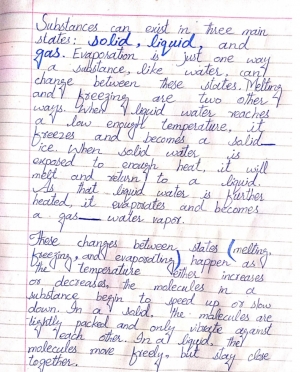 Substances can exist in three main
states: solid, liquid, and
gas. Evaporation is just one way
a substance, like water, can
change between these states. Melting
and freezing are two other
ways. When liquid water reaches
a low enough temperature, it
freezes and becomes a solid—
ice. When solid water is
exposed to enough heat, it will
melt and return to a liquid.
As that liquid water is further
heated, it evaporates and becomes
a gas— water vapor.
These changes between states (melting,
freezing, and evaporating) happen as
the temperature either increases
or decreases, the molecules in a
substance begin to speed up or slow
down. In a solid, the molecules are
tightly packed and only vibrate against
each other. In a liquid, the
molecules move freely, but stay close
together.